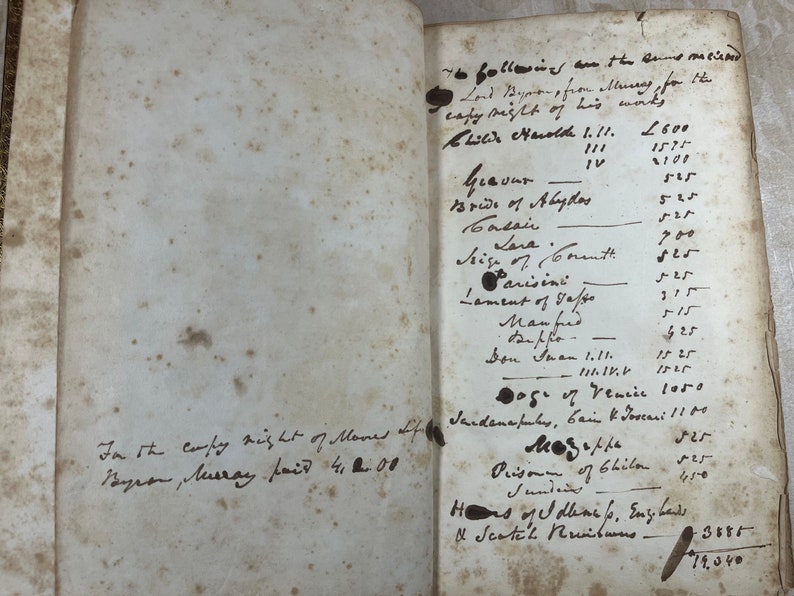 For the copy right of Moores Life
Byron, Murray paid 4,200
The following are the sums received
Lord Byron, from Murray, for the
copy right of his works
Childe Harolde I.II. £600
III 1575
IV 2100
Giaour — 525
Bride of Abydos 525
Corsair — 525
Lara. 700
Seige of Corinth. 525
Parisini — 525
Lament of Tasso 315
Manfred 315
Beppo — 525
Don Juan I.II. 1525
— III.IV.V 1525
Doge of Venice 1050
Sardanapulus, Cain & Foscari 1100
Mazeppa 525
Prisoner of Chilon 525
Sundries — 450
Hours of Idleness, English
& Scotch Reviewers — 3885
19,340